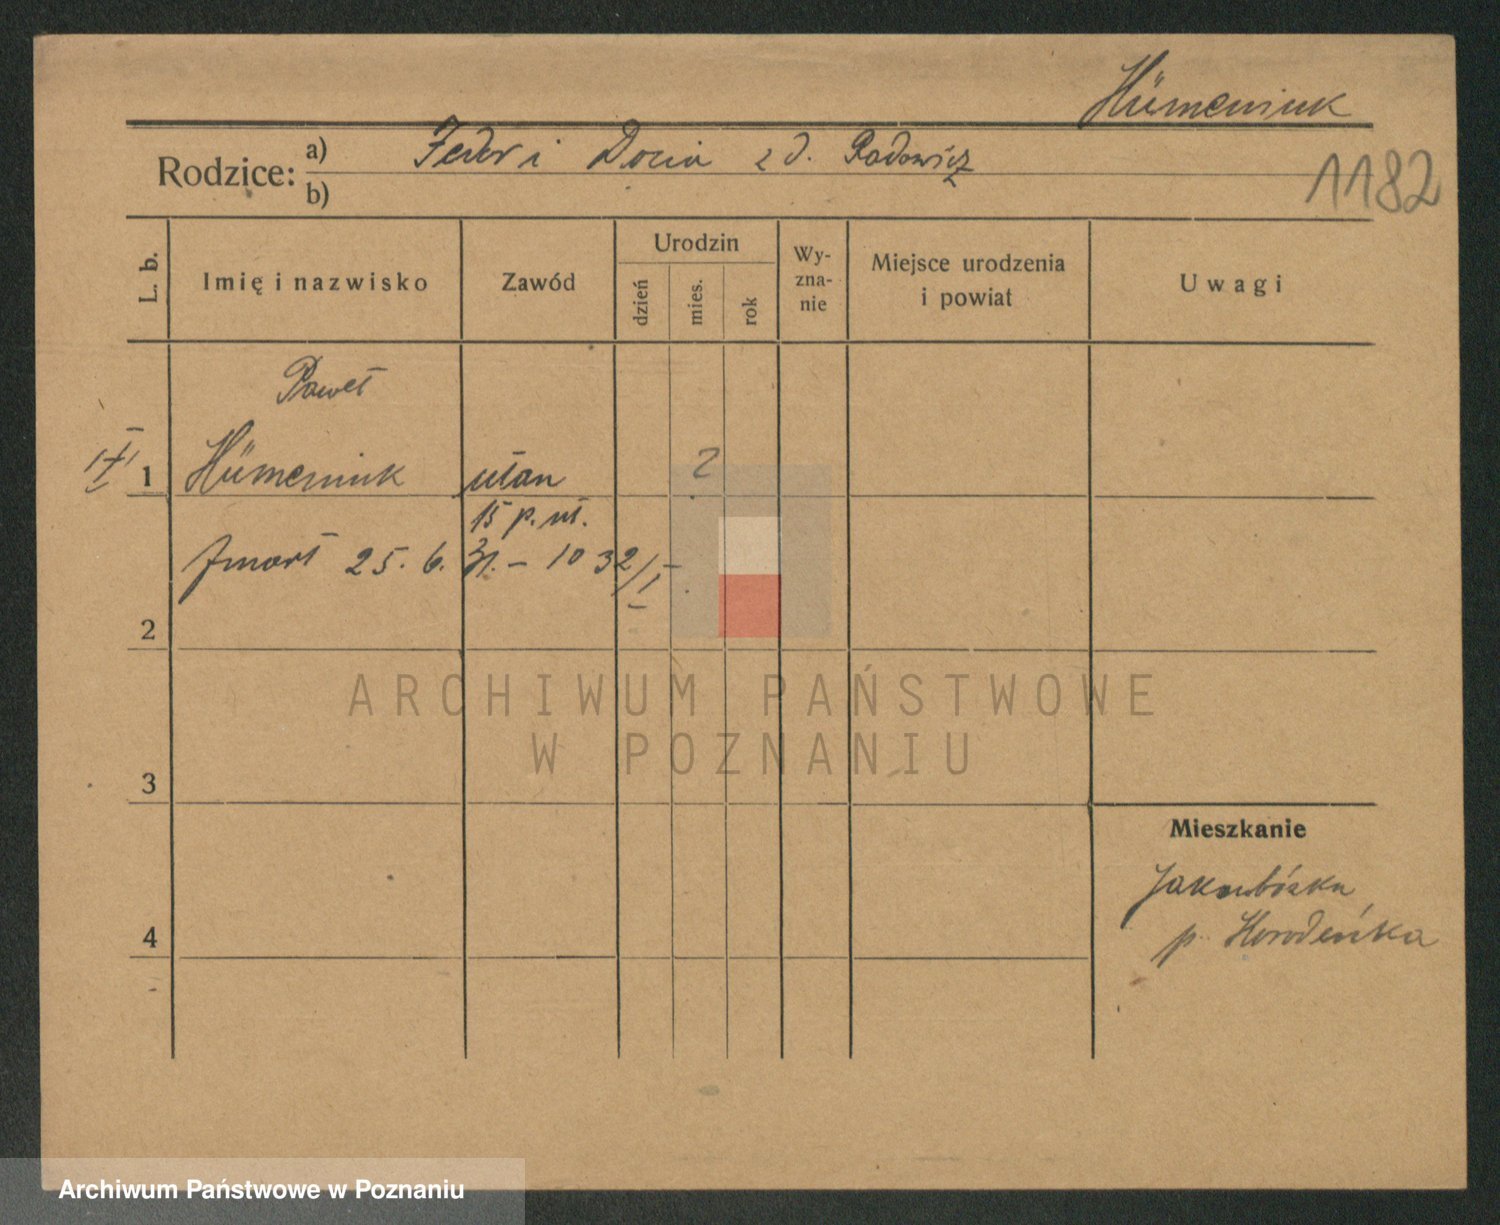 Hümeniuk
Rodzice: a) Feder i Docia z d. Radowicz
b)
1182
L. b.
Imię i nazwisko
Zawód
Urodzin
dzień
mies.
rok
Wy-
zna-
nie
Miejsce urodzenia
i powiat
Uwagi
Paweł
1 Hümeniuk ułan
15 p. uł.
Zmarł 25. 6. 31. – 1032/I
2
3
4
Mieszkanie
Jakubówka
p. Horodeńka
ARCHIWUM PAŃSTWOWE
W POZNANIU
Archiwum Państwowe w Poznaniu